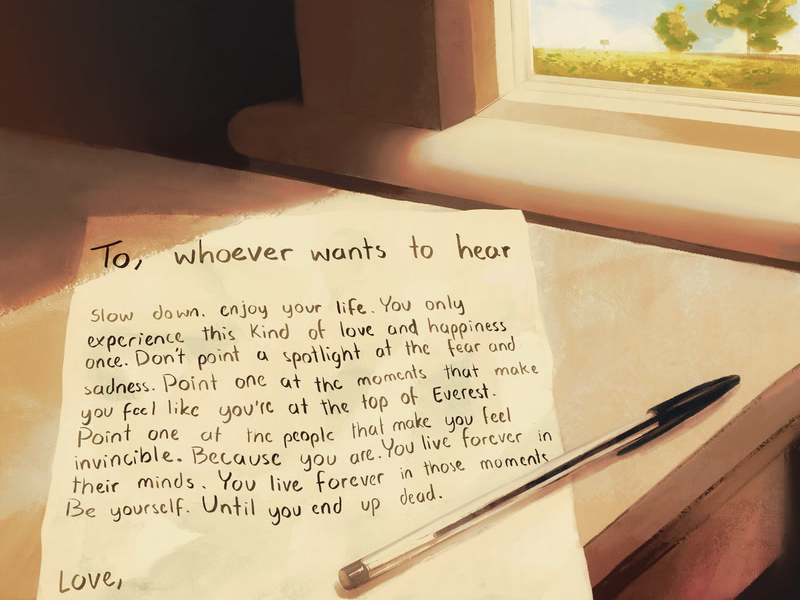 To, whoever wants to hear
Slow down. enjoy your life. You only
experience this Kind of love and happiness
once. Don't point a spotlight at the fear and
sadness. Point one at the moments that make
you feel like you're at the top of Everest.
Point one at the people that make you feel
invincible. Because you are. You live forever in
their minds. You live forever in those moments
Be yourself. Until you end up dead.
Love,